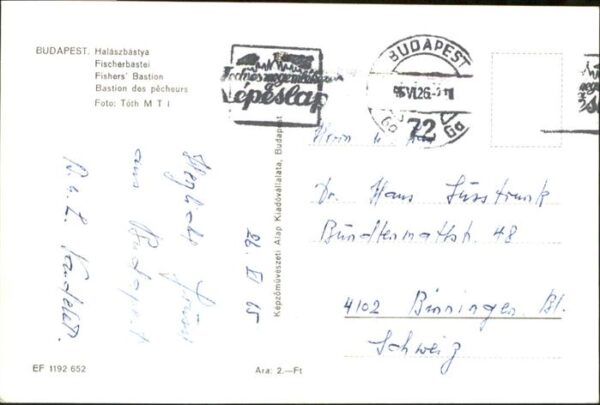 BUDAPEST. Halászbástya
Fischerbastei
Fishers' Bastion
Bastion des pêcheurs
Foto: Tóth M T I
képeslap
BUDAPEST
72
Képzőművészeti Alap Kiadóvállalata, Budapest
aus
Budapest
26. VI 65
Herrn u.
Dr. Hans Süsstrunk
Bündtenmattstr. 48
4102 Binningen Bl.
Schweiz
EF 1192 652
Ára: 2.—Ft